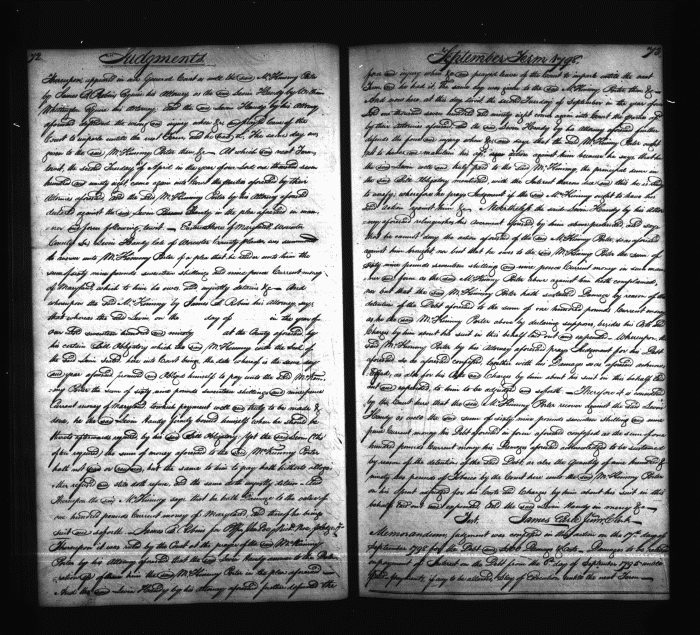 72
Judgments
Thereupon appeared in our General Court as well the said McKinmy Porter
by James B. Robins Esquire his Attorney, as the said Levin Handy by William
Whittington Esquire his Attorney. And the said Levin Handy by his Attorney
defends the wrong and injury when &c and prayed leave of the
Court to imparle until the next Term and he has it. The same day was
given to the said McKinmy Porter then &c. At which next Term,
to wit, the second Tuesday of April in the year of our Lord one thousand seven
hundred and ninety eight came again into Court the parties aforesaid by their
Attornies aforesaid and the said McKinmy Porter by his Attorney aforesaid
declared against the said Levin Handy in the plea aforesaid in man-
ner and form following to wit. Eastern Shore of Maryland Worcester
County Sct Levin Handy late of Worcester County planter was summoned
to answer unto McKinmy Porter of a plea that he render unto him the
sum of sixty nine pounds seventeen shillings and nine pence Current money
of Maryland which to him he owes and unjustly detains &c And
whereupon the said McKinmy by James B. Robins his Attorney says
that whereas the said Levin on the day of in the year of
our Lord seventeen hundred and ninety at the County aforesaid by
his certain Bill Obligatory which the said McKinmy with the Seal of
the said Levin Sealed here into Court brings, the date whereof is the same day
and year aforesaid promised and obliged himself to pay unto the said McKin-
my Porter the sum of sixty nine pounds seventeen shillings and nine pence
Current money of Maryland
said Levin Handy firmly bound himself when he should be
thereto afterwards required by his said Bill Obligatory Yet the said Levin altho'
often required the sum of money aforesaid to the said McKinmy Porter
hath not paid or rendered, but the same to him to pay hath hitherto altoge-
ther refused and still doth refuse and the same doth unjustly detain
Whereupon the said McKinmy says that he hath Damage to the value of
one hundred pounds Current money of Maryland and thereof he brings
suit and so forth James B. Robins for
Thereupon it was ruled by the Court at the prayer of the said McKinmy
Porter by his Attorney aforesaid that the said Levin Handy answer to the Decla-
ration of him the said McKinmy Porter in the plea aforesaid
And the said Levin Handy by his Attorney aforesaid further defends the
September Term 1798.
73
force and injury when &c and prayed leave of the Court to imparle until the next
Term and he had it, the same day was given to the said McKinmy Porter then &c
And now here at this day to wit the second Tuesday of September in the year of our
Lord one thousand seven hundred and ninety eight came again into Court the parties afsd.
by their Attornies aforesaid and the said Levin Handy by his Attorney aforesaid further
defends the force and injury when &c and says that the said McKinmy Porter ought
not to have or maintain his afsd. action against him because he says that he
the said Levin
the said Bill Obligatory mentioned with the Interest thereon and this he is ready
to verify, wherefore he prays Judgment if the said McKinmy ought to have his
said action against him &c. Nevertheless the said Levin Handy by his Attor-
ney aforesaid relinquishes his averment aforesaid by him above pleaded, and says
that he cannot deny the action aforesaid of the said McKinmy Porter as aforesaid
against him brought, nor but that he owes to the said McKinmy Porter the sum of
sixty nine pounds seventeen shillings and nine pence Current money in such man-
ner and form as the said McKinmy Porter above against him hath complained,
nor but that the said McKinmy Porter hath sustained Damage by reason of the
detention of the Debt aforesaid to the sum of one hundred pounds Current money
as he the said McKinmy Porter above by declaring supposes, besides his Costs and
Charges by him about his suit in this behalf laid out and expended. Whereupon the
said McKinmy Porter by his Attorney aforesaid prays Judgment for his Debt
aforesaid so as aforesaid confessed together with his Damages as aforesaid acknow-
ledged, as also for his Costs and Charges by him about his suit in this behalf laid
out and expended to him to be adjudged and so forth. Therefore it is considered
by the Court here that the said McKinmy Porter recover against the said Levin
Handy as well the said sum of sixty nine pounds seventeen shillings and nine
pence Current money his Debt aforesaid in form aforesaid confessed as the sum of one
hundred pounds Current money his Damages aforesaid acknowledged to be sustained
by reason of the detention of the said Debt as also the quantity of nine hundred &
ninety two pounds of Tobacco by the Court here unto the said McKinmy Porter
on his assent adjudged for his Costs and Charges by him about his suit in this
behalf laid out and expended and the said Levin Handy in mercy &c
Test. James Earle Junr. Clerk
Memorandum Judgment was entered in this action on the 17th day of
September 1798 for the Debt and
on payment of Interest on the Debt from the day of September 1795 and Costs
payments, if any to be allowed. Stay of Execution until the next Term